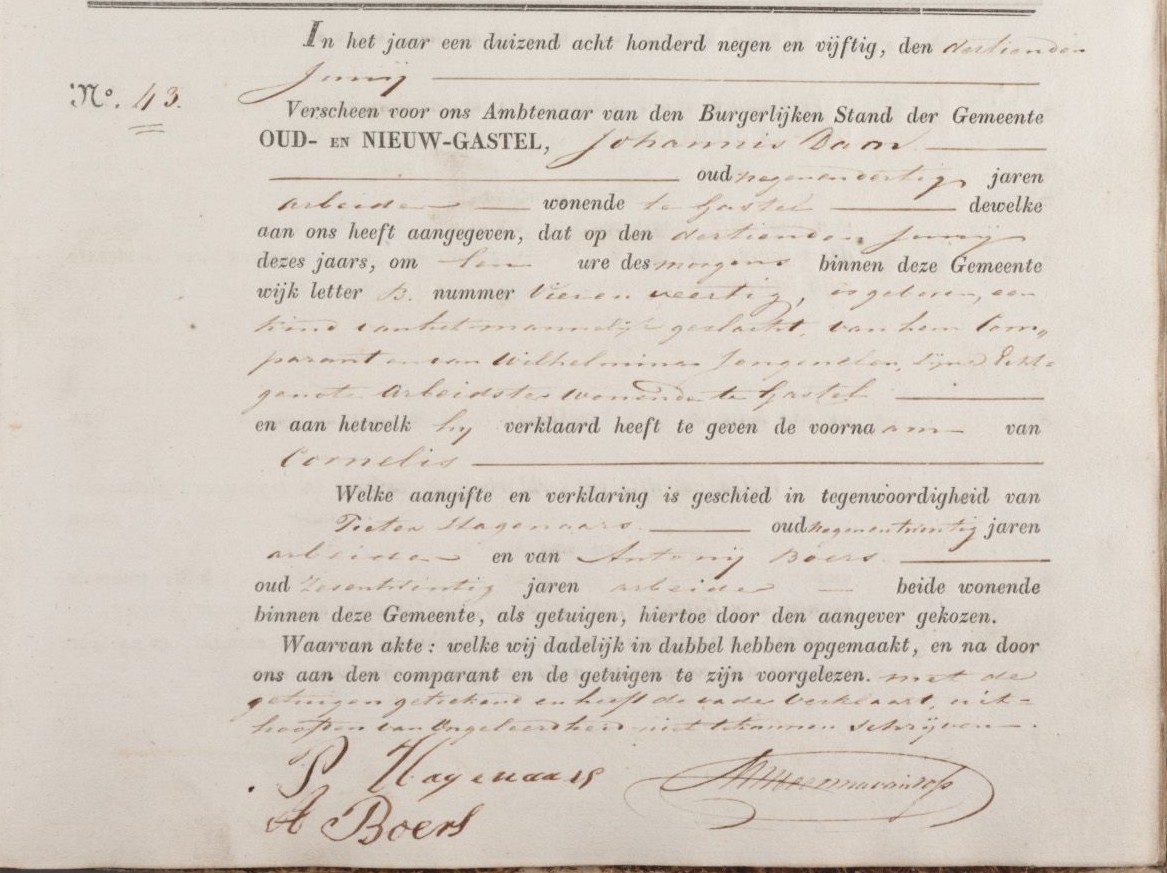 In het jaar een duizend acht honderd negen en vijftig, den dertienden
Junij
No. 43.
Verscheen voor ons Ambtenaar van den Burgerlijken Stand der Gemeente
OUD- EN NIEUW-GASTEL, Johannis Daon
oud negenendertig jaren
arbeider wonende te Gastel dewelke
aan ons heeft aangegeven, dat op den dertienden Junij
dezes jaars, om ure des morgens binnen deze Gemeente
wijk letter B. nummer Vier en veertig, is geboren, een
kind van het mannelijk geslacht, van hem Com„
parant en van Wilhelmina Jongenelen, zijne Echt=
genote Arbeidster wonende te Gastel
en aan hetwelk hy verklaard heeft te geven de voornaam van
Cornelis
Welke aangifte en verklaring is geschied in tegenwoordigheid van
Pieter Hagenaars oud negenentwintig jaren
arbeider en van Antonij Boers
oud Zesentwintig jaren arbeider beide wonende
binnen deze Gemeente, als getuigen, hiertoe door den aangever gekozen.
Waarvan akte: welke wij dadelijk in dubbel hebben opgemaakt, en na door
ons aan den comparant en de getuigen te zijn voorgelezen. met de
getuigen geteekend en heeft de vader verklaart, uit=
hoofden van Ongeleerdheid niet te kunnen schrijven
P Hagenaars
A Boers